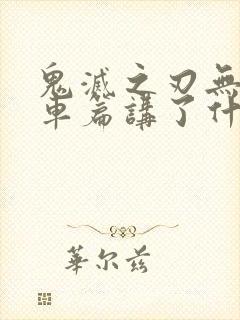 鬼滅之刃無
車篇講了什
華尔兹